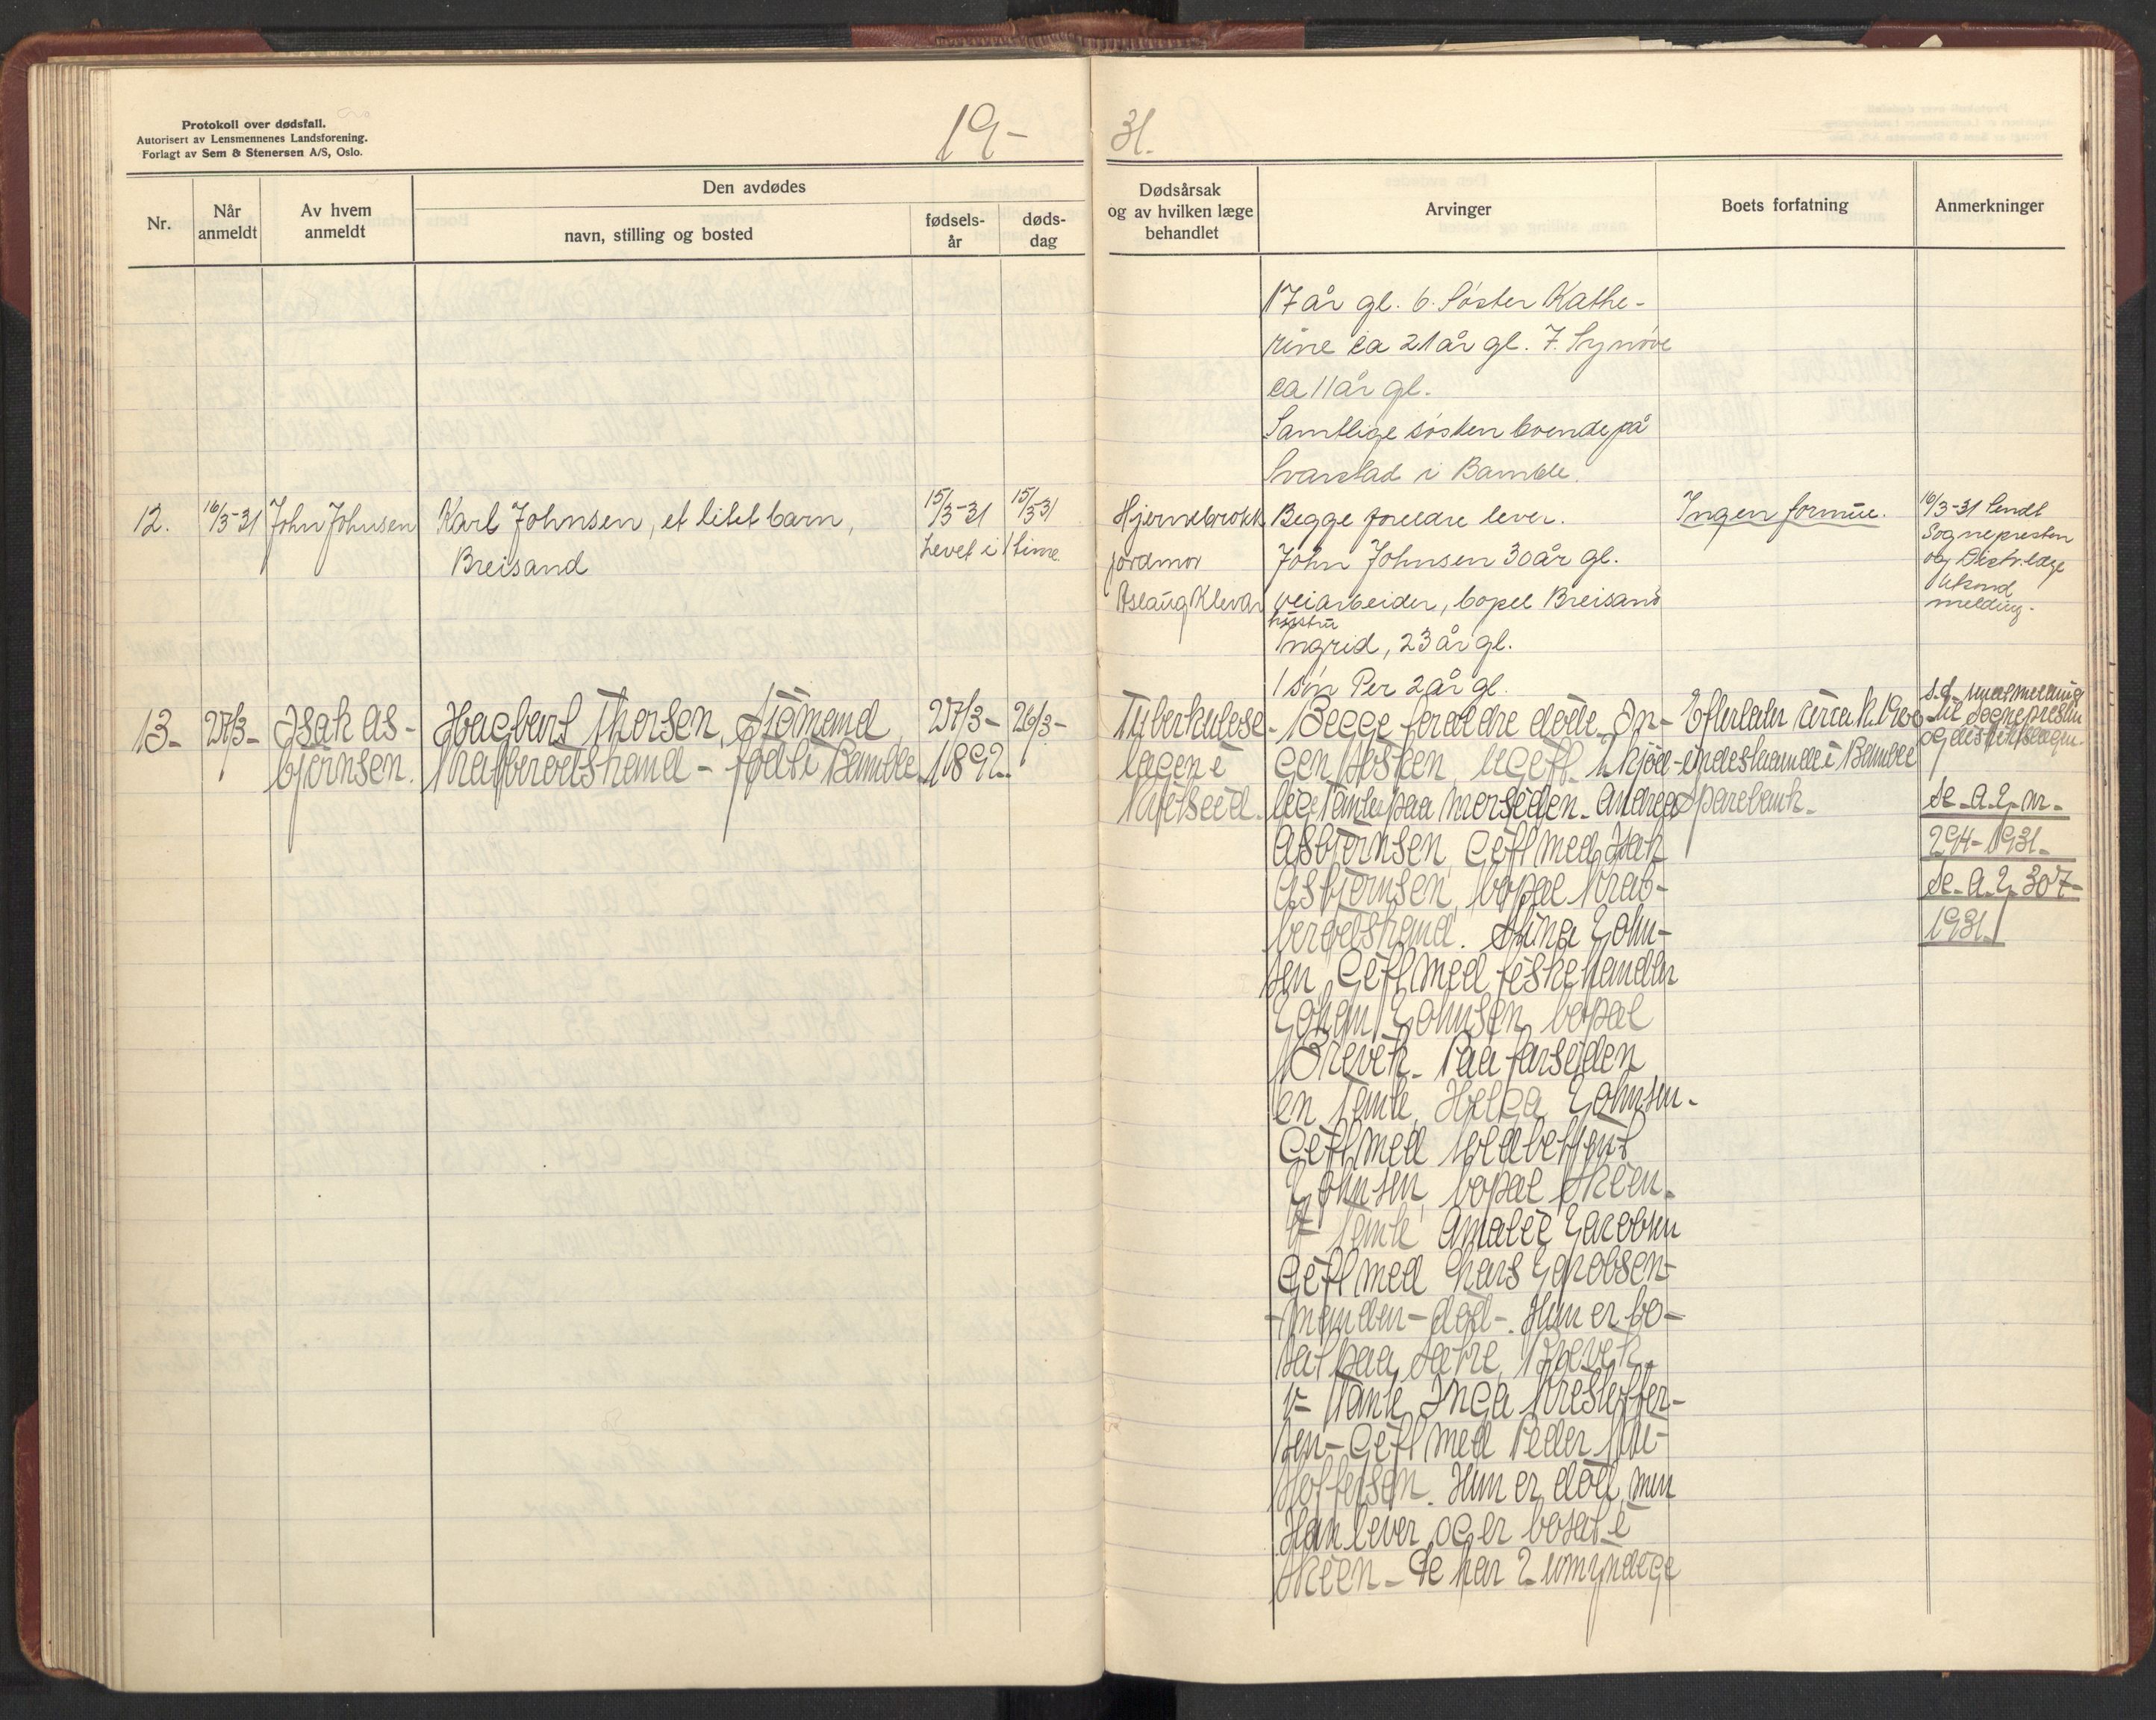 Protokoll over dødsfall.
Autorisert av Lensmennenes Landsforening.
Forlagt av Sem & Stenersen A/S, Oslo.
19-
31.
Nr.
Når anmeldt
Av hvem anmeldt
Den avdødes
navn, stilling og bosted
fødsels-år
døds-dag
Dødsårsak og av hvilken læge behandlet
Arvinger
Boets forfatning
Anmerkninger
17 år gl. 6. Søster Kathe-
rine ca 21 år gl. 7. Synøve
ca 11 år gl.
Samtlige søsken boende på
Svarstad i Bamble.
12.
16/3-31
John Johnsen
Karl Johnsen, et litet barn,
Breisand
15/3-31
15/3-31
Levet i 1 time.
Hjernebrokk
jordmor
Aslaug Klevar
Begge foreldre lever.
John Johnsen 30 år gl.
veiarbeider, bopel Breisand
hustru
Ingrid, 23 år gl.
1 søn Per 2 år gl.
Ingen formue.
16/3-31 Sendt
Sognepresten
og Distr.læge
melding.
13-
27/3-
Isak As-
bjørnsen.
Hagbart Thorsen, Sjömand
Krabberødstrand - født i Bamble
27/3-
1892.
26/3-
Tuberkulose-
lagen i
Begge foreldre døde. In-
gen søsken, ugift. 2 kjød-
lige tanter paa morsiden. Andrea
Asbjørnsen, gift med Isak
Asbjørnsen, bopæl Krab-
berødstrand. Stina John-
sen, gift med fiskehandler
Johan Johnsen, bopæl
Brevik. Paa farsiden
en tante, Helga Johnsen-
gift med
Johnsen, bopæl Skien.
1- tante Amalie Jacobsen
gift med Lars Jacobsen-
-manden-død-. Hun er bo-
sat paa Sætre, Brevik.
1- tante Inga Kristoffer-
sen- gift med Peder Kri-
stoffersen. Hun er död, men
Han lever og er bosat i
Skien- De har 2 umyndige
Efterlater circa kr. 1900-
indestaaende i Bamble
Sparebank.
s.d. sendt melding
til sognepresten
og distriktslægen.
Se. A. J. nr.
294-1931.
Se. A. J. 307-
1931.